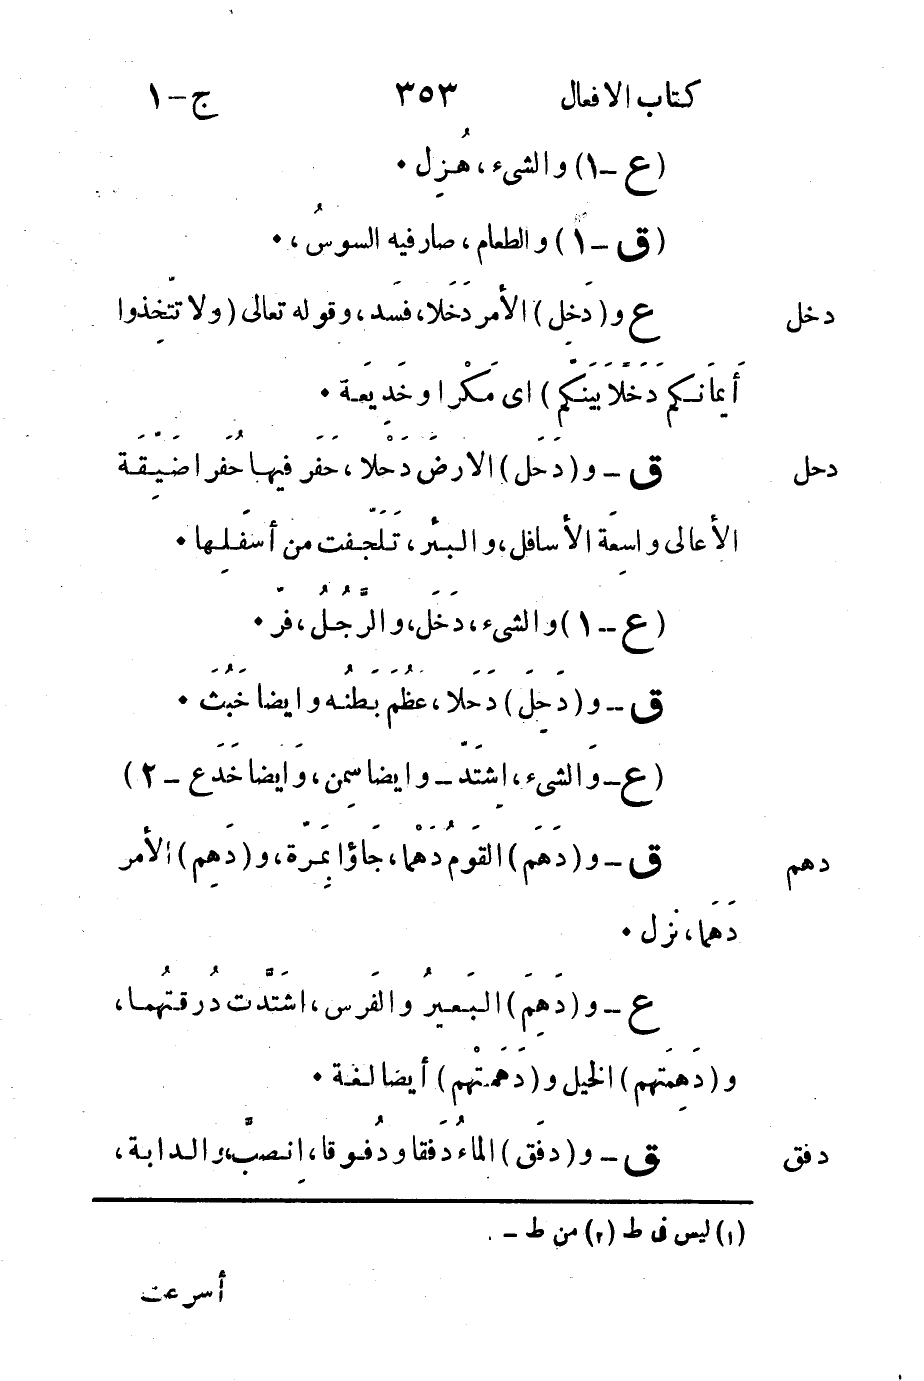 كتاب الافعال ٣٥٣ ج-١
(ع -١) والشىء، هُزِل •
(ق -١) والطعام، صار فيه السوسُ، •
دخل ع و(دَخِل) الأمر دَخَلا، فسَد، وقوله تعالى (ولا تتّخِذوا
أَيمَانَكم دَخَلًا بَينَكم) اى مَكْرا وخَدِيعَة •
دحل ق - و(دَحَل) الارضَ دَحْلا، حَفَر فيها حُفَرا ضَيِّقَة
الأعالى واسِعَة الأسافل، والبئر، تَلَجَّفت من أسفَلِها •
(ع -١) والشىء، دَخَل، والرَّجُلُ، فرّ •
ق - و(دَحِلَ) دَحَلا، عَظُمَ بَطنُه وايضا خَبُثَ •
(ع - وَالشىء، اِشتَدّ - وايضا سمِن، وَايضا خَدَع - ٢)
دهم ق - و(دَهَم) القوَمُ دَهْما، جَاؤا بِمَرّة، و(دَهِم) الأمر
دَهَما، نزل •
ع - و(دَهِمَ) البَعيرُ والفَرس، اشتَدَّت دُرقتُهما،
و(دَهِمَتهم) الخيل و(دَهَمَتْهم) أيضا لغة •
دفق ق - و(دفَق) الماءُ دَفقا ودُفوقا، اِنصبَّ، والدابة،
(١) ليس فى ط (٢) من ط -
أسرعت